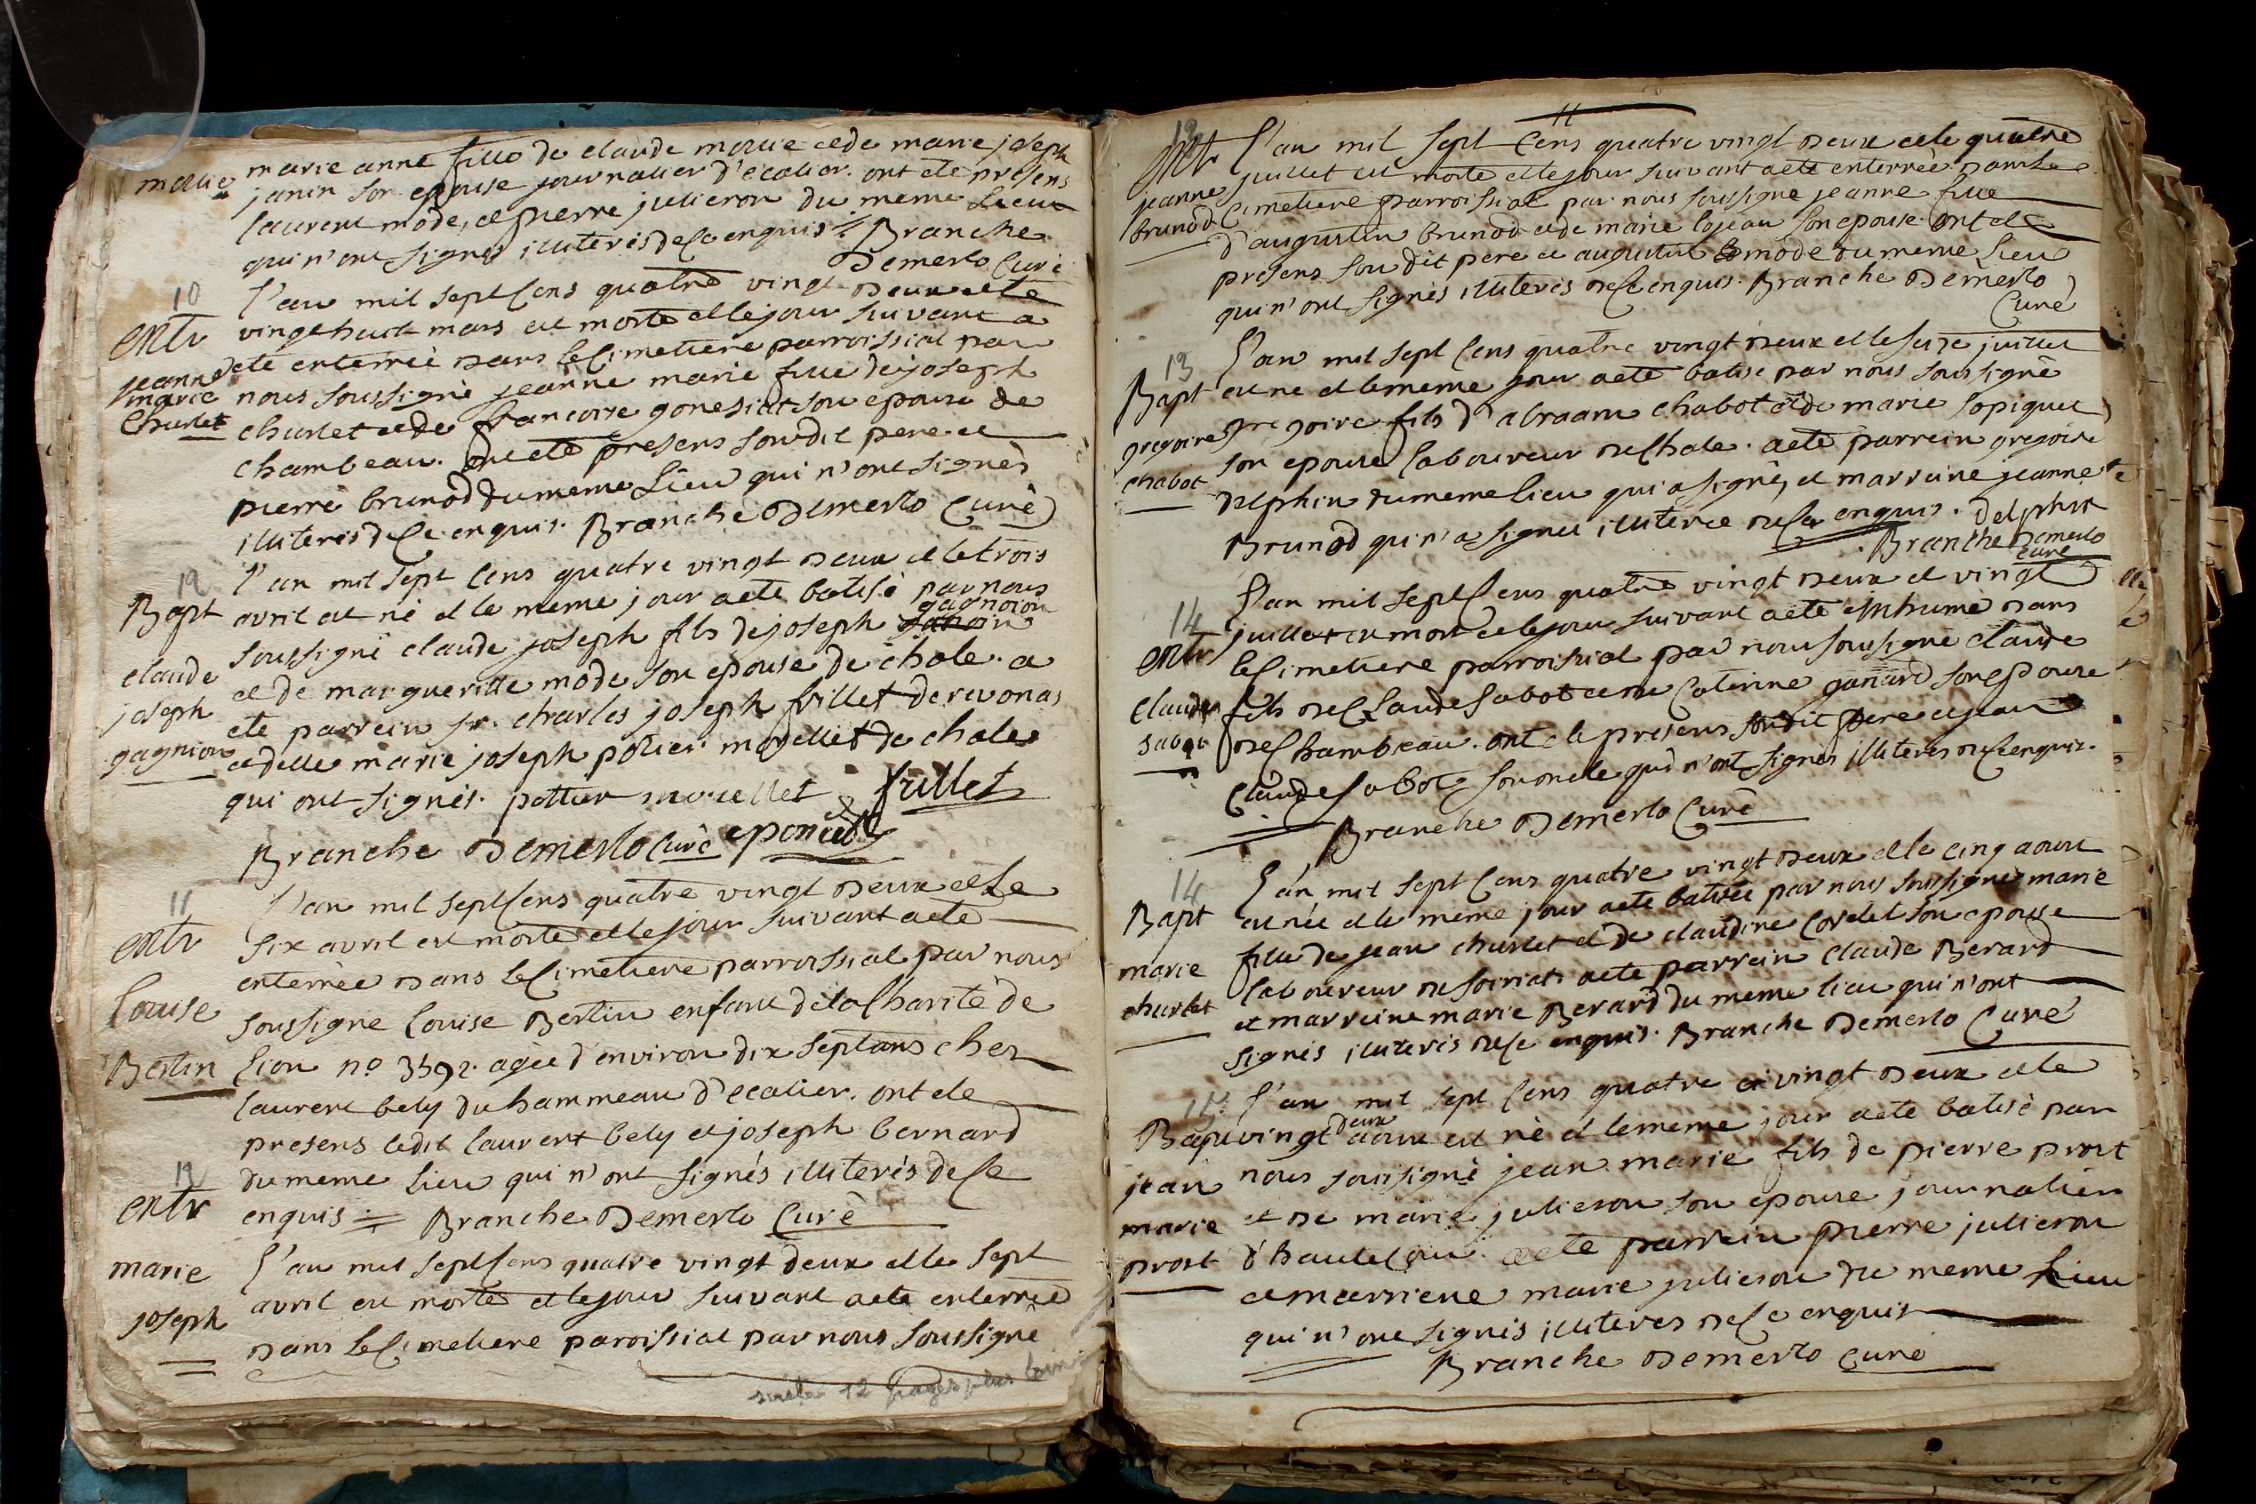 marie anne fille de claude morue et de marie joseph
morue janin son epouse journalier d'ecalier. ont ete presens
laurent mode, et pierre julieron du meme Lieu
qui n'ont signes illiteres de ce enquis. Branche
Demerlo Curé
10
l'an mil sept Cens quatre vingt Deux et le
entr vingt huit mars est morte et le jour suivant a
jeanne ete enterreé Dans le Cimetiere parroissial par
marie nous soussigné jeanne marie fille de joseph
Churlet churlet et de francoise gonesiat son epouse de
chambeau. ont ete presens son dit pere et
pierre brunod du meme Lieu qui n'ont signès
illiterés de ce enquis. Branche Demerlo Curè
12
l'an mil sept Cens quatre vingt Deux et le trois
Bapt avril est né et le meme jour a eté batisé par nous
gagnoion
soussigné claude joseph fils de joseph janoin
claude et de margueritte mode son epouse de chole. a
joseph ete parrein sr. charles joseph frillet de revonas
gagnion et delle marie joseph potier morellet de chole
qui ont signés. pottier morellet frillet
Branche Demerlo Curè eponcet
11
l'an mil sept Cens quatre vingt Deux et Le
entr six avril est morte et le jour suivant a eté
enterrée Dans le Cimetiere parroissial par nous
Louise soussigne Louise Bertin enfant de la Charité de
Bertin Lion no 3392. agée d'environ dix sept ans chez
laurent bely du hammeau d'ecalier. ont ete
presens ledit laurent bely et joseph bernard
du meme Lieu qui n'ont signés illiterés de Ce
12
entr enquis Branche Demerlo Curè
marie l'an mil sept Cens quatre vingt deux et le sept
joseph avril est morte et le jour suivant a ete enterreé
Dans le Cimetiere paroissial par nous soussigné
suite 12 pages plus loin
11
12
Entr l'an mil sept Cens quatre vingt Deux et le quatre
jeanne juillet est morte et le jour suivant a eté enterrée dans Le
brunod Cimetiere parroissial par nous soussigné jeanne fille
d'augustin brunod et de marie lojeau son epouse. ont ete
presens son dit pere et augustin mode du meme Lieu
qui n'ont signés illiterés de Ce enquis. Branche Demerlo
Curé
13
l'an mil sept Cens quatre vingt Deux et le seize juillet
Bapt est né et le meme jour a eté batisé par nous soussigné
gregoire gregoire fils d'abraam chabot et de marie sapiquet
chabot son epouse Laboureur de Chole. a eté parrein gregoire
Delphin du meme lieu qui a signé, et marreine jeanne
Brunod qui n'a signé illiterée de Ce enquis. Delphin
Branche Demerlo
curé
14
l'an mil sept Cens quatre vingt Deux et vingt
entr juillet est mort et le jour suivant a eté inhumé Dans
le Cimetiere parroissial par nous soussigné claude
claude fils de Claude sabot et de Caterine ganard son epouse
sabot de Chambeau. ont ete presens son dit pere et jean
Claude sabot son oncle qui n'ont signes illiteres de Ce enquis.
Branche Demerlo Curé
14
l'an mil sept Cens quatre vingt Deux et le cinq aoust
Bapt est née et le même jour a eté batisée par nous soussigné marie
marie fille de jean churlet et de claudine Corelet son epouse
churlet laboureur de soiriat. a eté parrein claude Berard
et marreine marie Berard du meme lieu qui n'ont
signés illiterés de Ce enquis. Branche Demerlo Curé
15
l'an mil sept Cens quatre vingt Deux et le
deux
Bapt vingt aoust est né et le meme jour a eté batisé par
jean nous soussigné jean marie fils de pierre prost
marie et de marie julieron son epouse journalier
prost d'hautecour. a eté parrein pierre julieron
et marriene marie julieron du meme Lieu
qui n'ont signés illiterés de Ce enquis
Branche Demerlo curé